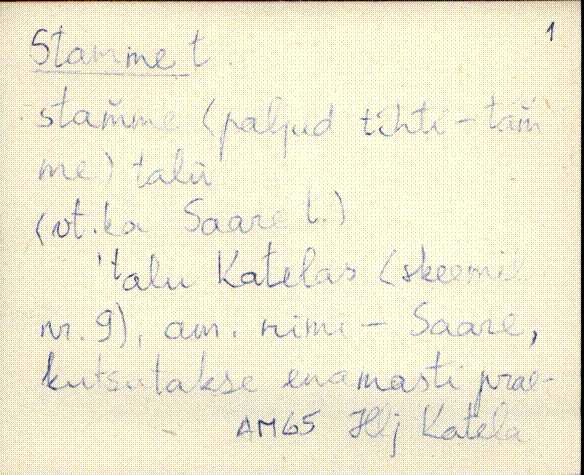 1
Stamme t.
stam̆me (paljud tihti-tam̆
me) talu
(vt. ka Saare t.)
'talu Katelas (skeemil
nr. 9), am. nimi - Saare,
kutsutakse enamasti prae-
AM65 Hlj Katela